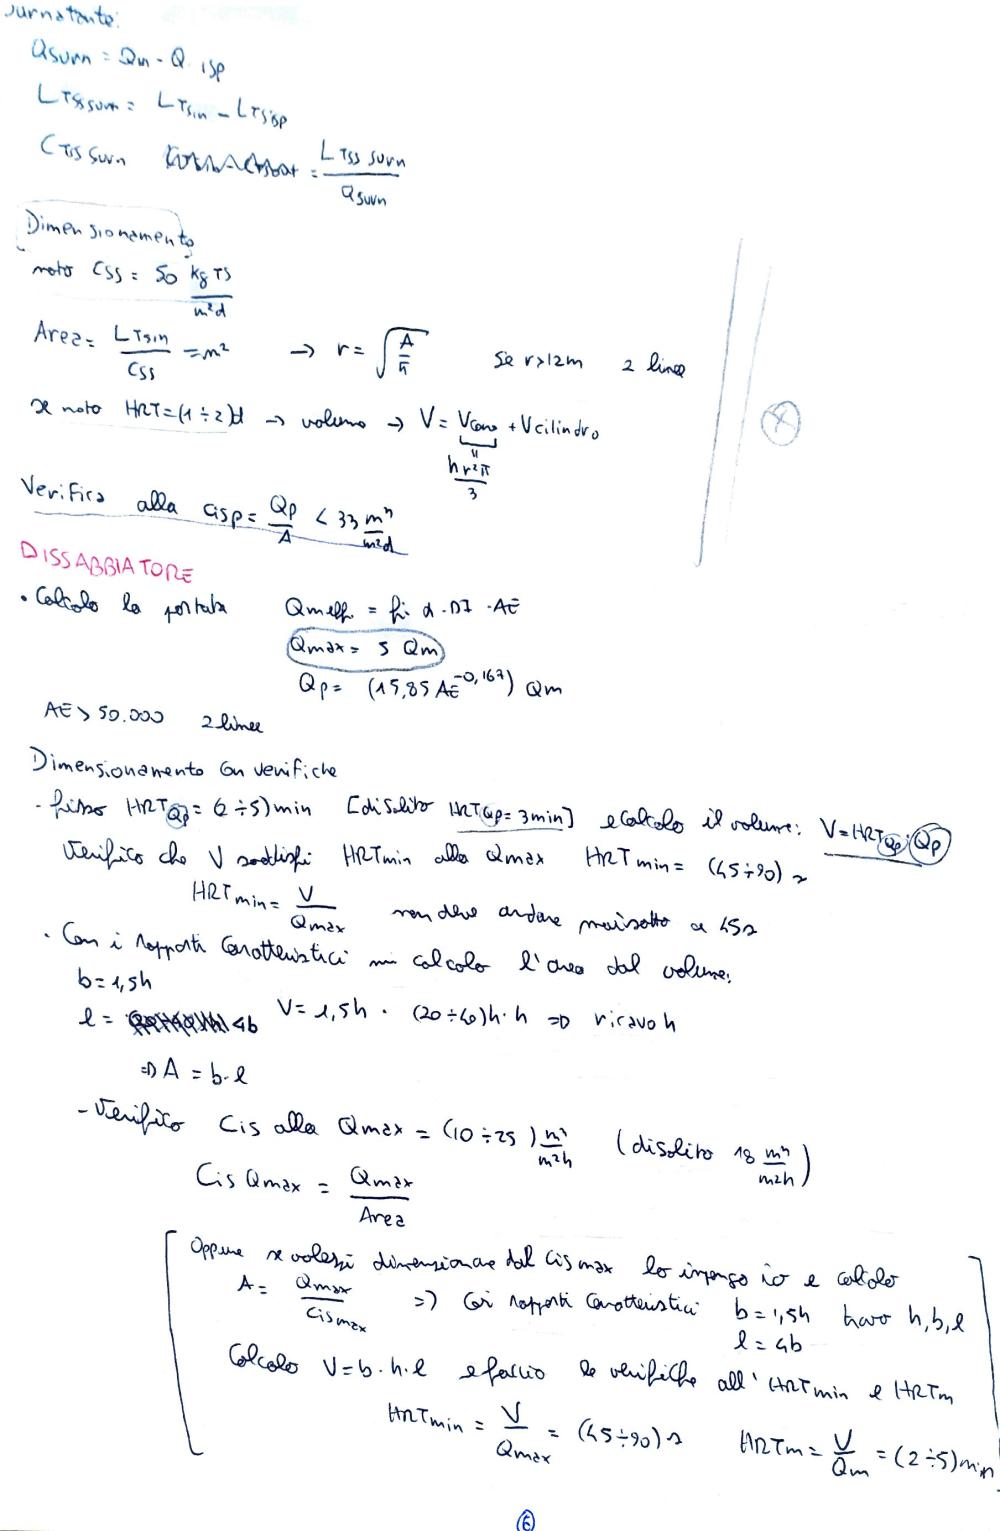 surnatante:
Qsurn = Qin - Q isp
LTSSsurn = LTSin - LTSisp
CTSS surn = LTSS surn / Qsurn
Dimensionamento
noto CSS = 50 kg TS / m²d
Area = LTSin / CSS = m² → r = √(A/π) se r>12m 2 linee
se noto HRT = (1÷2)d → volume → V = Vcono + Vcilindro
" hr²π / 3
Verifica alla CISP = Qp / A < 33 m³ / m²d
DISSABBIATORE
• Calcolo la portata Qm eff = fi α · DI · AE
Qmax = 5 Qm
Qp = (15,85 AE^-0,167) Qm
AE > 50.000 2 linee
Dimensionamento con verifiche
- fisso HRT Qp = (2÷5) min [di solito HRT Qp = 3min] e calcolo il volume: V = HRT Qp · Qp
Verifico che V soddisfi HRTmin alla Qmax HRT min = (45÷90) s
HRT min = V / Qmax non deve andare mai sotto a 45s
• Con i rapporti caratteristici mi calcolo l'area dal volume:
b = 1,5h
l = 4b V = 1,5h · (20÷40)h · h => ricavo h
=> A = b·l
- Verifico Cis alla Qmax = (10÷25) m³ / m²h (di solito 18 m³ / m²h)
Cis Qmax = Qmax / Area
Oppure se volessi dimensionare dal Cis max lo impongo io e calcolo
A = Qmax / Cis max => Coi rapporti caratteristici b = 1,5h trovo h, b, l
l = 4b
Calcolo V = b·h·l e faccio le verifiche all'HRT min e HRTm
HRT min = V / Qmax = (45÷90) s HRTm = V / Qm = (2÷5) min
6